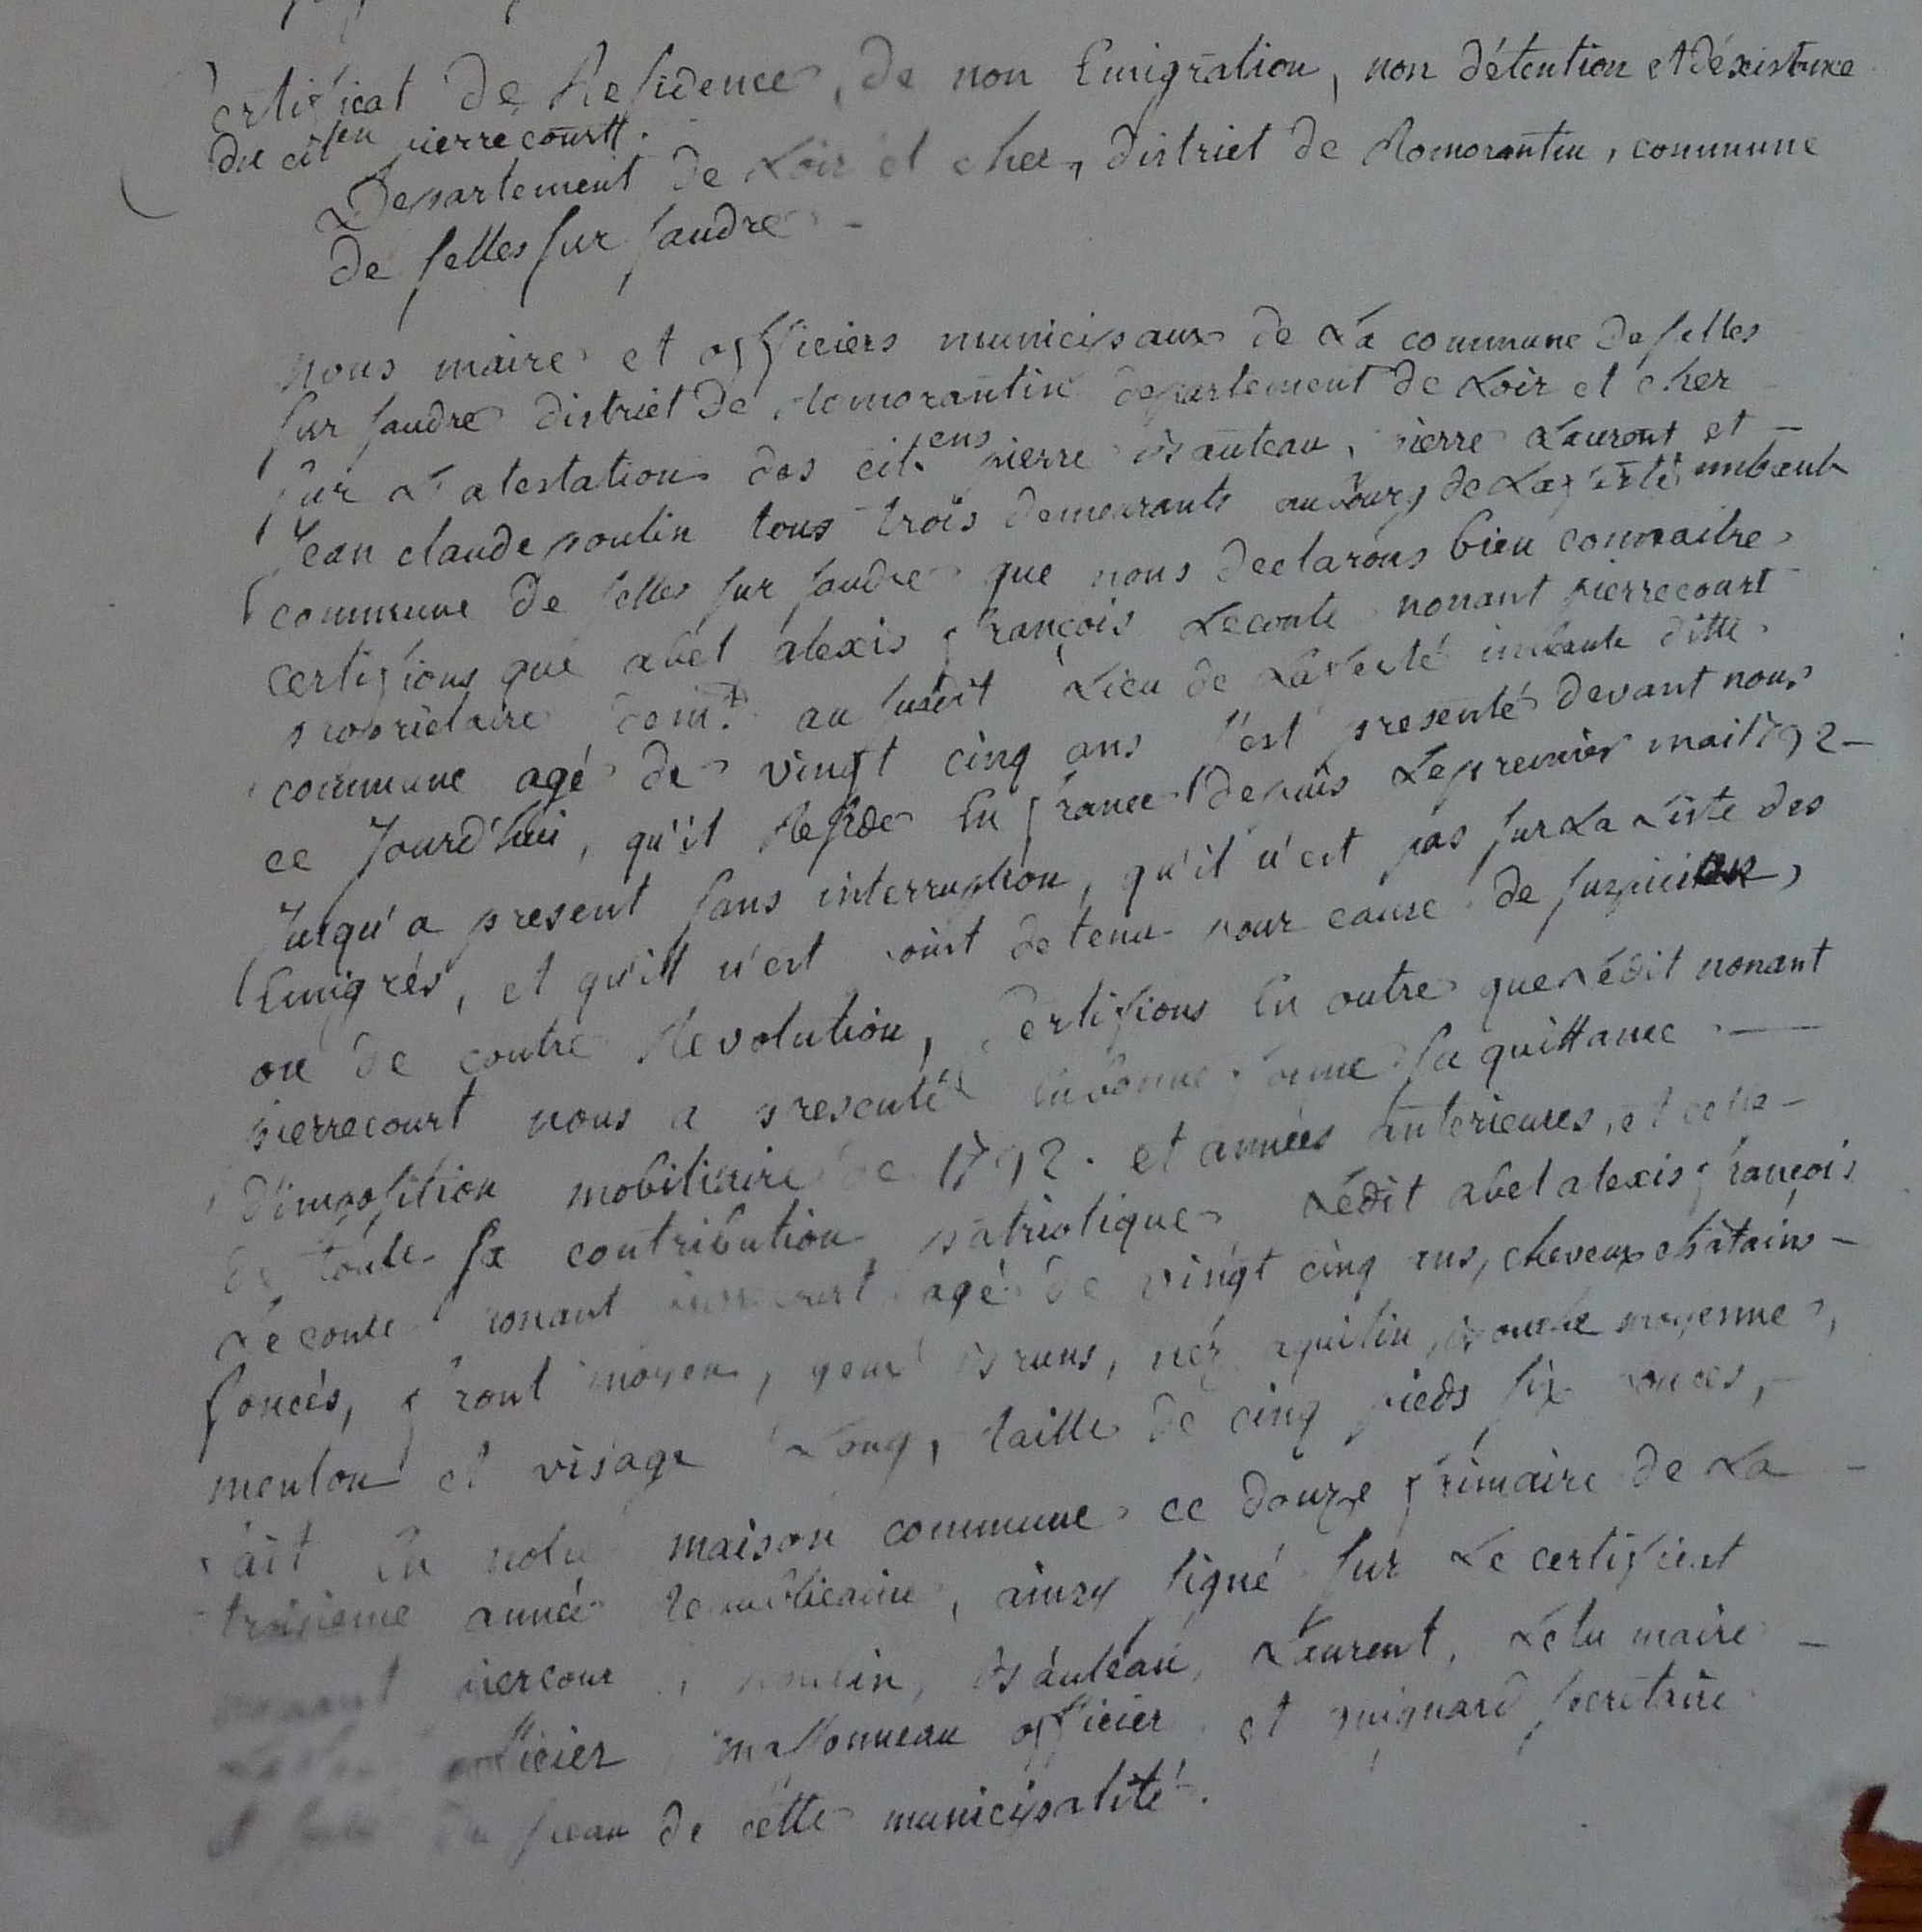 Certificat de Residence, de non Emigration, non détention et d'éxistence
du cit.en pierrecourtt.
Departement de Loir et cher, district de Romorantin, commune
de selles sur saudre -
Nous maire et officiers municipaux de La commune de selles
sur saudre district de Romorantin departement de Loir et cher
sur L'atestation des cit.ens pierre Bauteau, pierre Laurent et -
Jean claude poulin tous trois demeurants au bourg de Laferté imbault
commune de selles sur saudre que nous declarons bien connaitre
certifions que abel alexis françois Leconte nonant pierrecourt
proprietaire dem.t au susdit Lieu de Laferté imbault ditte
commune agé de vingt cinq ans s'est presenté devant nous
ce Jourd'hui, qu'il Reside En france depuis Le premier mai 1792 -
Jusqu'a present sans interruption, qu'il n'est pas sur La Liste des
Emigrés, et qu'ill n'est point detenu pour cause de suspicion,
ou de contre Revolution, Certifions En outre que Lédit nonant
pierrecourt nous a presenté En bonne forme sa quittance -
d'imposition mobiliaire de 1792. et années anterieures, et celle -
de toute sa contribution patriotique Lédit abel alexis françois
Leconte nonant pierrecourt agé de vingt cinq ans, cheveux châtains -
foncés, front moyen, yeux bruns, néz aquilin, bouche moyenne,
menton et visage Long, taille de cinq pieds six pouces, -
fait En notre maison commune ce douze frimaire de La -
troisieme année Republicaine, ainsy signé sur Le certificat
nonant piercour, poulin, Bauteau, Laurent, Lelu maire -
officier, massonneau officier, et guignard secretaire
et du sceau de cette municipalité.